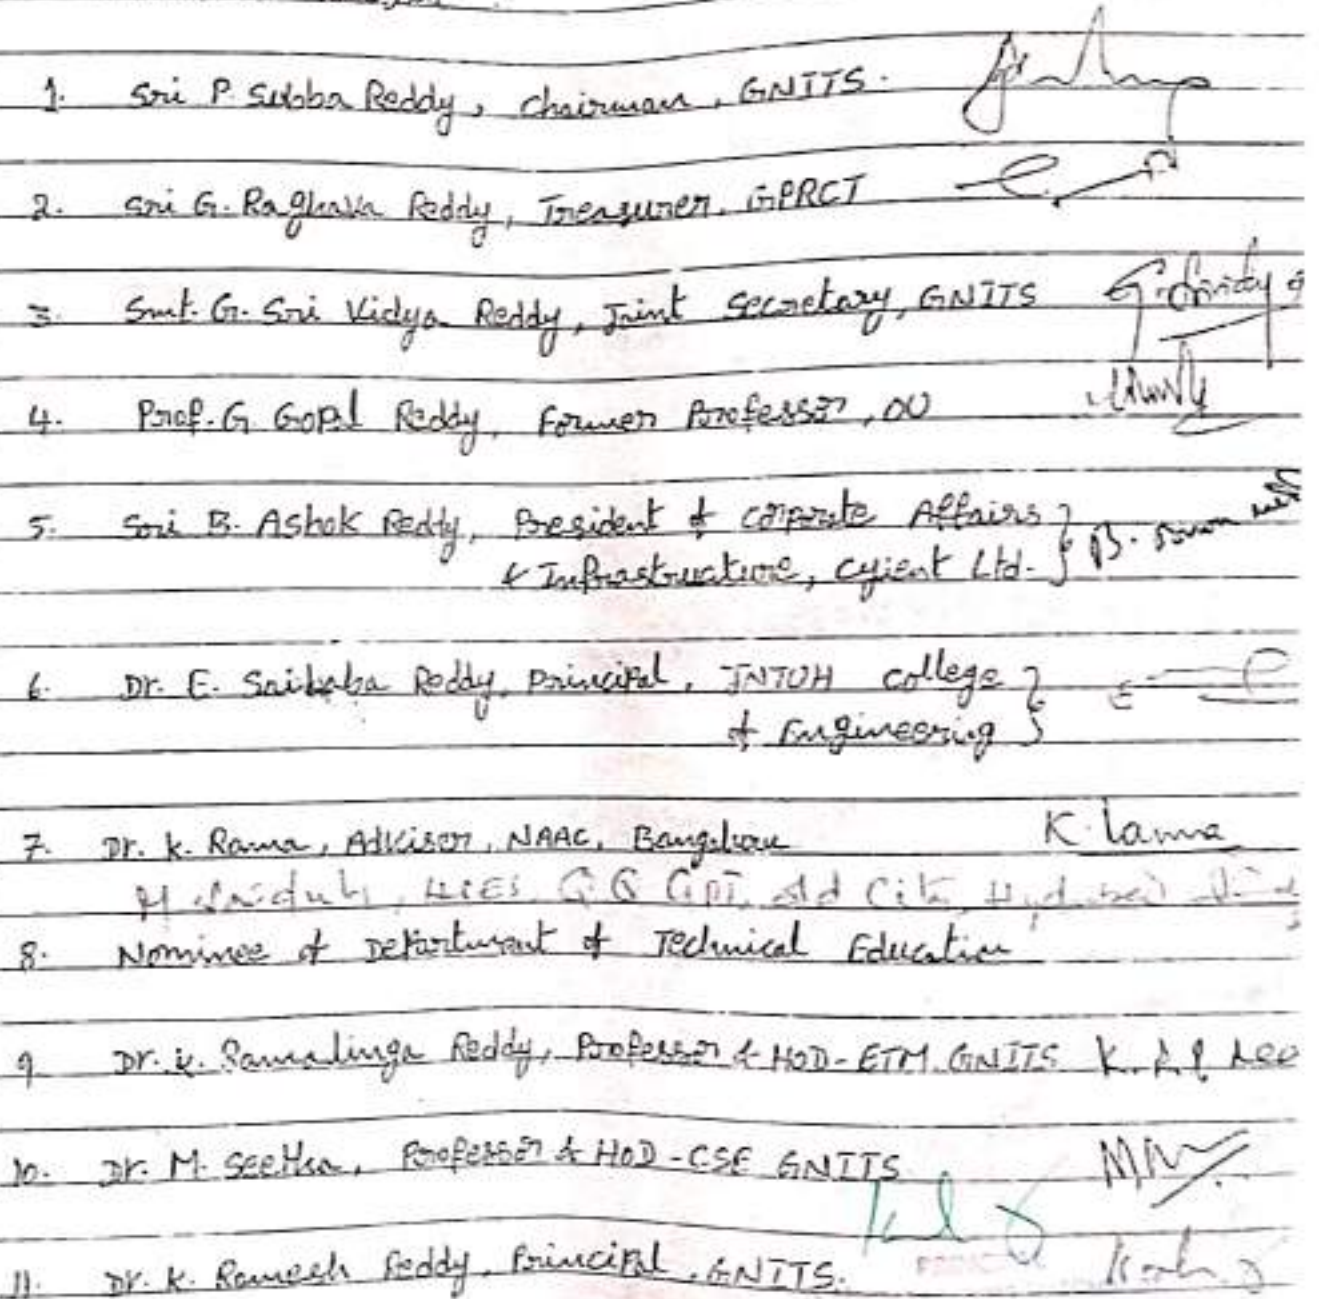 1. Sri P. Subba Reddy, Chairman, GNITS.
2. Sri G. Raghava Reddy, Treasurer, GPRCT
3. Smt. G. Sri Vidya Reddy, Joint Secretary, GNITS
4. Prof. G. Gopal Reddy, Former Professor, OU
5. Sri B. Ashok Reddy, President of Corporate Affairs
& Infrastructure, Cyient Ltd.
6. Dr. E. Saibaba Reddy, Principal, JNTUH College
of Engineering
7. Dr. K. Rama, Advisor, NAAC, Bangalore K. Rama
8. Nominee of Department of Technical Education
9 Dr. K. Ramalinga Reddy, Professor & HOD-ETM, GNITS
10. Dr. M. Seetha, Professor & HOD-CSE GNITS
11. Dr. K. Ramesh Reddy, Principal, GNITS.